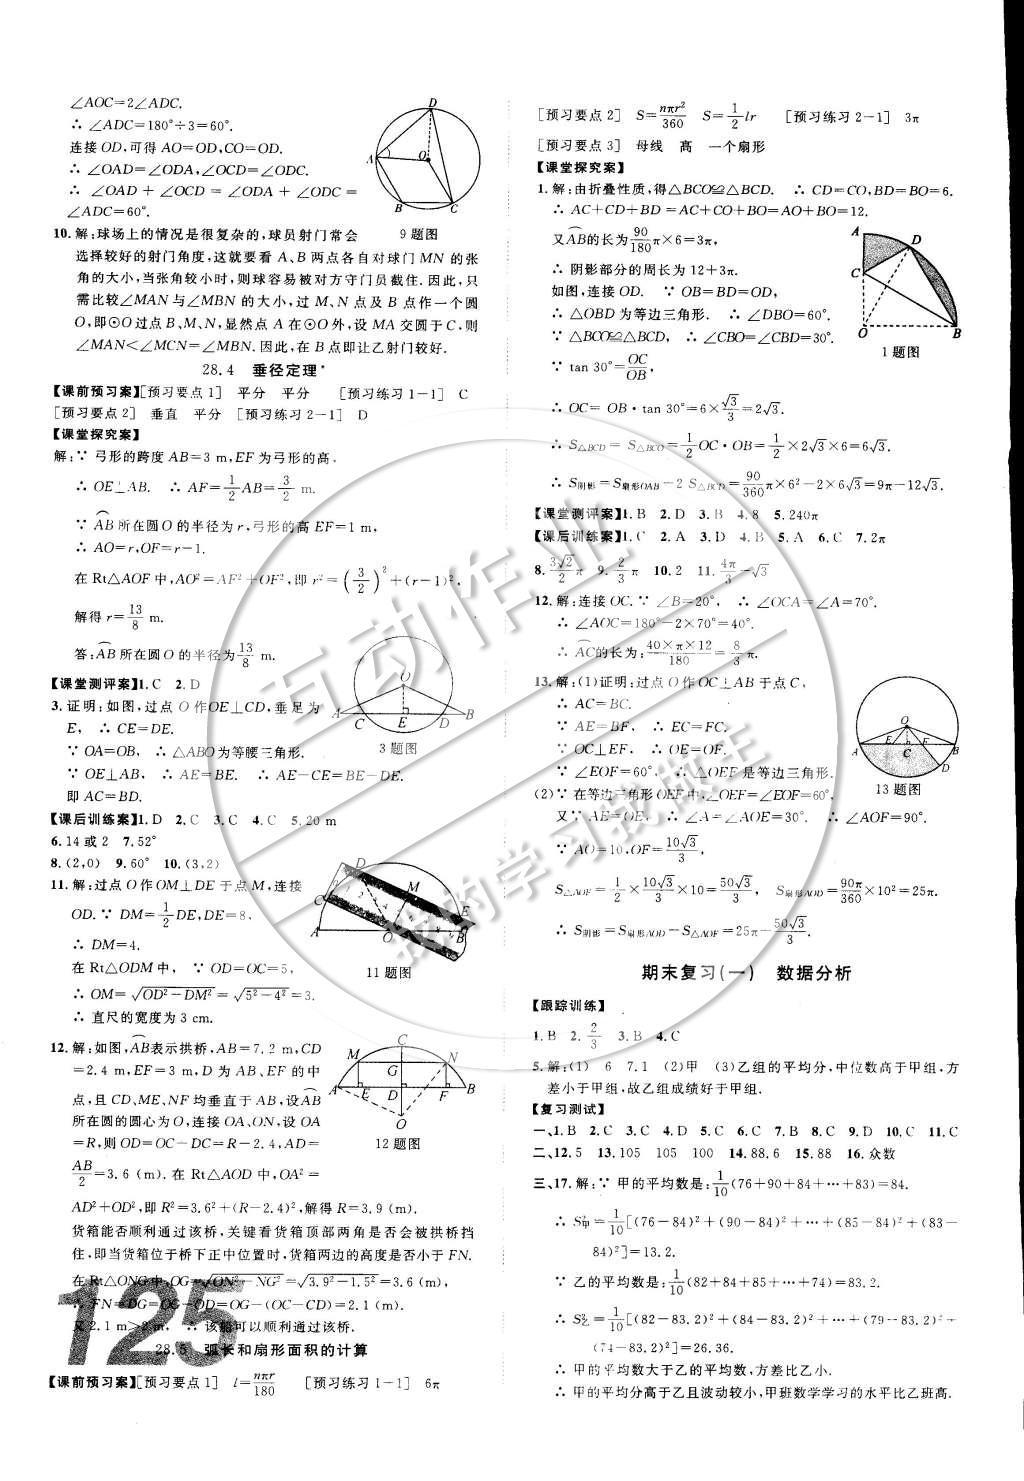 ∠AOC=2∠ADC.
∴ ∠ADC=180°÷3=60°.
连接 OD,可得 AO=OD,CO=OD.
∴ ∠OAD=∠ODA,∠OCD=∠ODC.
∴ ∠OAD + ∠OCD = ∠ODA + ∠ODC =
∠ADC=60°.
9题图
10.解:球场上的情况是很复杂的,球员射门常会
选择较好的射门角度,这就要看 A、B 两点各自对球门 MN 的张
角的大小,当张角较小时,则球容易被对方守门员截住.因此,只
需比较∠MAN 与∠MBN 的大小,过 M、N 点及 B 点作一个圆
O,即⊙O 过点 B、M、N,显然点 A 在⊙O 外,设 MA 交圆于 C,则
∠MAN<∠MCN=∠MBN.因此,在 B 点即让乙射门较好.
28.4 垂径定理*
【课前预习案】[预习要点1] 平分 平分 [预习练习1-1] C
[预习要点2] 垂直 平分 [预习练习2-1] D
【课堂探究案】
解:∵ 弓形的跨度 AB=3 m,EF 为弓形的高,
∴ OE⊥AB. ∴ AF=1/2 AB=3/2 m.
∵ AB⌒所在圆 O 的半径为 r,弓形的高 EF=1 m,
∴ AO=r,OF=r-1.
在 Rt△AOF 中,AO²=AF²+OF²,即 r²=(3/2)²+(r-1)²,
解得 r=13/8 m.
答:AB⌒所在圆 O 的半径为13/8 m.
【课堂测评案】1.C 2.D
3.证明:如图,过点 O 作 OE⊥CD,垂足为
E, ∴ CE=DE.
∵ OA=OB, ∴ △ABO 为等腰三角形.
3题图
∵ OE⊥AB, ∴ AE=BE. ∴ AE-CE=BE-DE.
即 AC=BD.
【课后训练案】1.D 2.C 3.C 4.C 5.20 m
6.14 或 2 7.52°
8.(2,0) 9.60° 10.(3,2)
11.解:过点 O 作 OM⊥DE 于点 M,连接
OD.∵ DM=1/2 DE,DE=8,
∴ DM=4.
在 Rt△ODM 中, ∵ OD=OC=5,
11题图
∴ OM=√(OD²-DM²)=√(5²-4²)=3.
∴ 直尺的宽度为 3 cm.
12.解:如图,AB⌒表示拱桥,AB=7.2 m,CD
=2.4 m,EF=3 m,D 为 AB、EF 的中
点,且 CD、ME、NF 均垂直于 AB,设AB⌒
所在的圆的圆心为 O,连接 OA、ON,设 OA
=R,则 OD=OC-DC=R-2.4,AD=
12题图
AB/2=3.6 (m).在 Rt△AOD 中,OA²=
AD²+OD²,即 R²=3.6²+(R-2.4)²,解得 R=3.9(m).
货箱能否顺利通过该桥,关键看货箱顶部两角是否会被拱桥挡
住,即当货箱位于桥下正中位置时,货箱两边的高度是否小于 FN.
在 Rt△ONG 中,OG=√(ON²-NG²)=√(3.9²-1.5²)=3.6 (m),
∴ FN=DG=OG-OD=OG-(OC-CD)=2.1 (m).
又 2.1 m>2 m, ∴ 该船可以顺利通过该桥.
28.5 弧长和扇形面积的计算
【课前预习案】[预习要点1] l=nπr/180 [预习练习1-1] 6π
125
[预习要点2] S=nπr²/360 S=1/2 lr [预习练习2-1] 3π
[预习要点3] 母线 高 一个扇形
【课堂探究案】
1.解:由折叠性质,得△BCO≌△BCD. ∴ CD=CO,BD=BO=6.
∴ AC+CD+BD=AC+CO+BO=AO+BO=12.
又AB⌒的长为90/180π×6=3π,
∴ 阴影部分的周长为 12+3π.
如图,连接 OD. ∵ OB=BD=OD,
∴ △OBD 为等边三角形. ∴ ∠DBO=60°.
∵ △BCO≌△BCD, ∴ ∠CBO=∠CBD=30°.
1题图
∵ tan 30°=OC/OB,
∴ OC=OB·tan 30°=6×√3/3=2√3.
∴ S△BCD=S△BCO=1/2 OC·OB=1/2×2√3×6=6√3.
∴ S阴影=S扇形OAB-2 S△BCD=90/360π×6²-2×6√3=9π-12√3.
【课堂测评案】1.B 2.D 3.B 4.8 5.240π
【课后训练案】1.C 2.A 3.D 4.B 5.A 6.C 7.2π
8.3√2/2π 9.2/3π 10.2 11.4π/3-√3
12.解:连接 OC.∵ ∠B=20°, ∴ ∠OCA=∠A=70°.
∴ ∠AOC=180°-2×70°=40°.
∴ AC⌒的长为:40×π×12/180=8/3π.
13.解:(1)证明:过点 O 作 OC⊥AB 于点 C,
∴ AC=BC.
∵ AE=BF, ∴ EC=FC.
∵ OC⊥EF, ∴ OE=OF.
∵ ∠EOF=60°, ∴ △OEF 是等边三角形.
13题图
(2)∵ 在等边三角形 OEF 中,∠OEF=∠EOF=60°,
又∵ AE=OE, ∴ ∠A=∠AOE=30°. ∴ ∠AOF=90°.
∵ AO=10,OF=10√3/3,
S△AOF=1/2×10√3/3×10=50√3/3, S扇形AOD=90π/360×10²=25π.
∴ S阴影=S扇形AOD-S△AOF=25π-50√3/3.
期末复习(一) 数据分析
【跟踪训练】
1.B 2.2/3 3.B 4.C
5.解:(1) 6 7.1 (2)甲 (3)乙组的平均分,中位数高于甲组,方
差小于甲组,故乙组成绩好于甲组.
【复习测试】
一、1.B 2.C 3.C 4.D 5.C 6.C 7.B 8.C 9.D 10.C 11.C
二、12.5 13.105 105 100 14.88.6 15.88 16.众数
三、17.解:∵ 甲的平均数是:1/10(76+90+84+…+83)=84.
∴ S²甲=1/10[(76-84)²+(90-84)²+…+(85-84)²+(83-
84)²]=13.2.
∵ 乙的平均数是:1/10(82+84+85+…+74)=83.2.
∴ S²乙=1/10[(82-83.2)²+(84-83.2)²+…+(79-83.2)²+
(74-83.2)²]=26.36.
∴ 甲的平均数大于乙的平均数,甲的方差小于乙的方差.
∴ 甲的平均分高于乙且波动较小,甲班数学学习的水平比乙班高.
互动作业
我的学习我做主